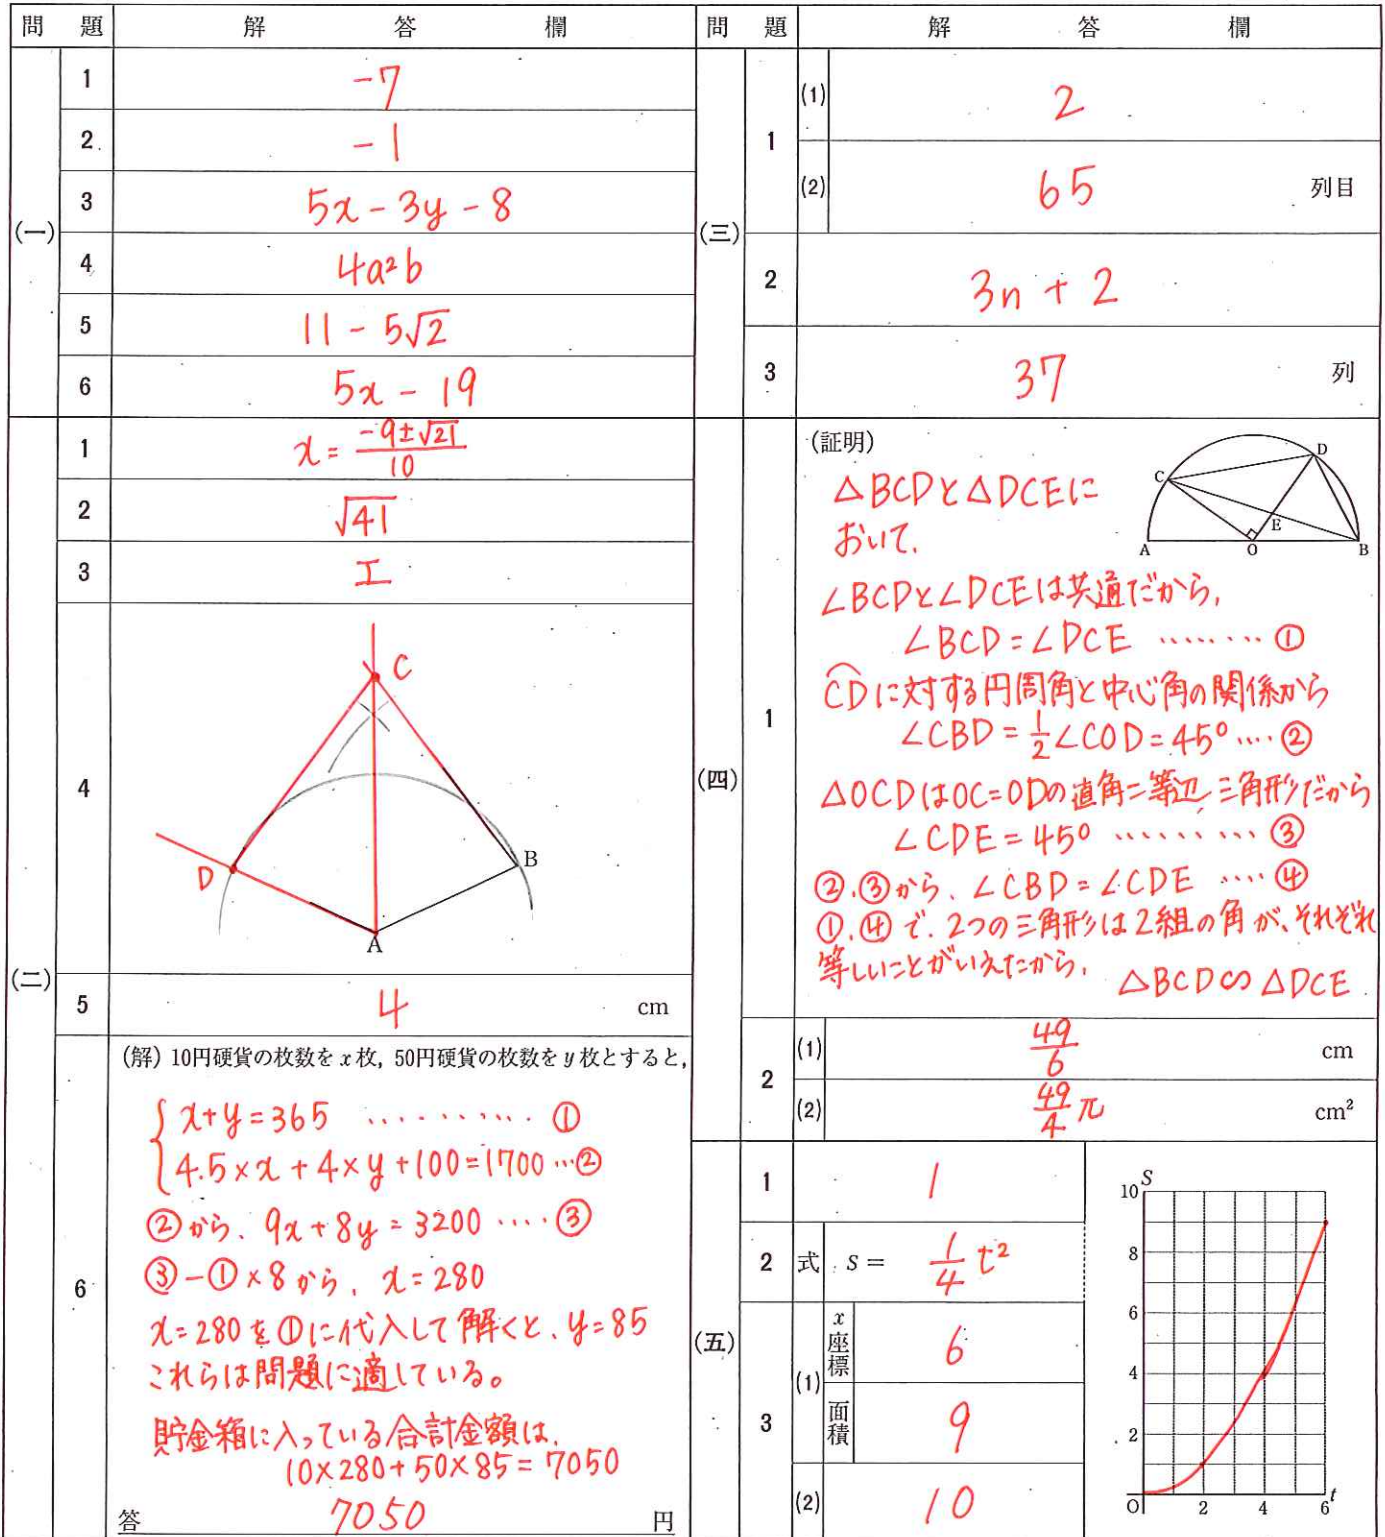 問 題 解 答 欄
(一)
1 −7
2 −1
3 5x − 3y − 8
4 4a²b
5 11 − 5√2
6 5x − 19
(二)
1 x = (−9±√21)/10
2 √41
3 エ
4
C
D
B
A
5 4 cm
6 (解) 10円硬貨の枚数をx枚, 50円硬貨の枚数をy枚とすると,
{ x+y=365 ………… ①
4.5×x + 4×y + 100=1700 …②
②から、9x+8y=3200 …… ③
③−①×8から、x=280
x=280を①に代入して解くと、y=85
これらは問題に適している。
貯金箱に入っている合計金額は、
10×280+50×85=7050
答 7050 円
問 題 解 答 欄
(三)
1 (1) 2
(2) 65 列目
2 3n + 2
3 37 列
(四)
1 (証明)
D
C
E
A O B
△BCDと△DCEに
おいて、
∠BCDと∠DCEは共通だから、
∠BCD=∠DCE ……… ①
⌒CDに対する円周角と中心角の関係から
∠CBD=1/2∠COD=45° …… ②
△OCDはOC=ODの直角二等辺三角形だから
∠CDE=45° ………… ③
②、③から、∠CBD=∠CDE …… ④
①、④で、2つの三角形は2組の角が、それぞれ
等しいことがいえたから、 △BCD∽△DCE
2 (1) 49/6 cm
(2) 49/4 π cm²
(五)
1 1
2 式 S = 1/4 t²
3 (1) x座標 6
面積 9
(2) 10
S
10
8
6
4
2
O 2 4 6 t